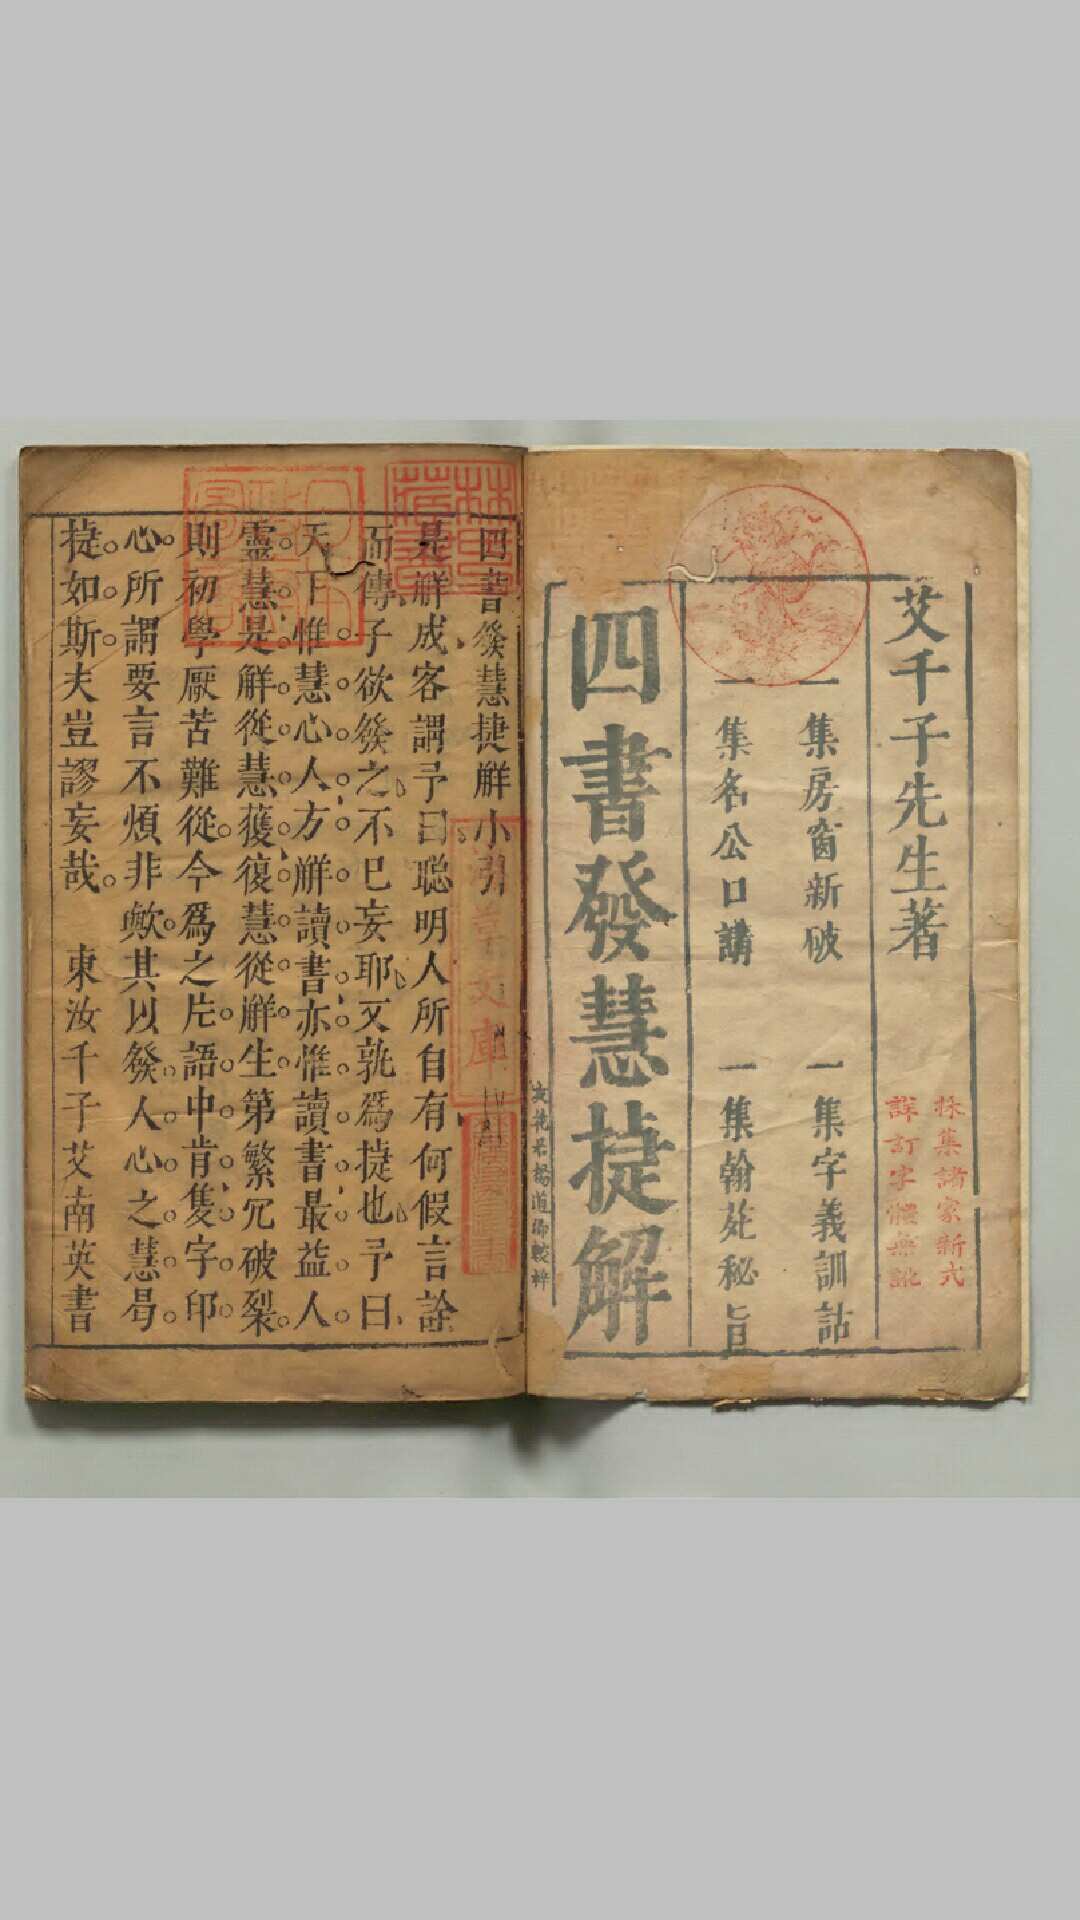 艾千子先生著
採集諸家新式
詳訂字體無訛
一集房窗新破
一集字義訓詁
一集名公口講
一集翰苑秘旨
四書發慧捷解
四書發慧捷解小引
是解成客謂予曰聰明人所自有何假言詮
而傳子欲發之不已妄耶又孰為捷也予曰
天下惟慧心人方解讀書亦惟讀書最益人
靈慧是解從慧獲復慧從解生第繁冗破裂
則初學厭苦難從今爲之片語中肯隻字印
心所謂要言不煩非歟其以發人心之慧曷
捷如斯夫豈謬妄哉 東汝千子艾南英書